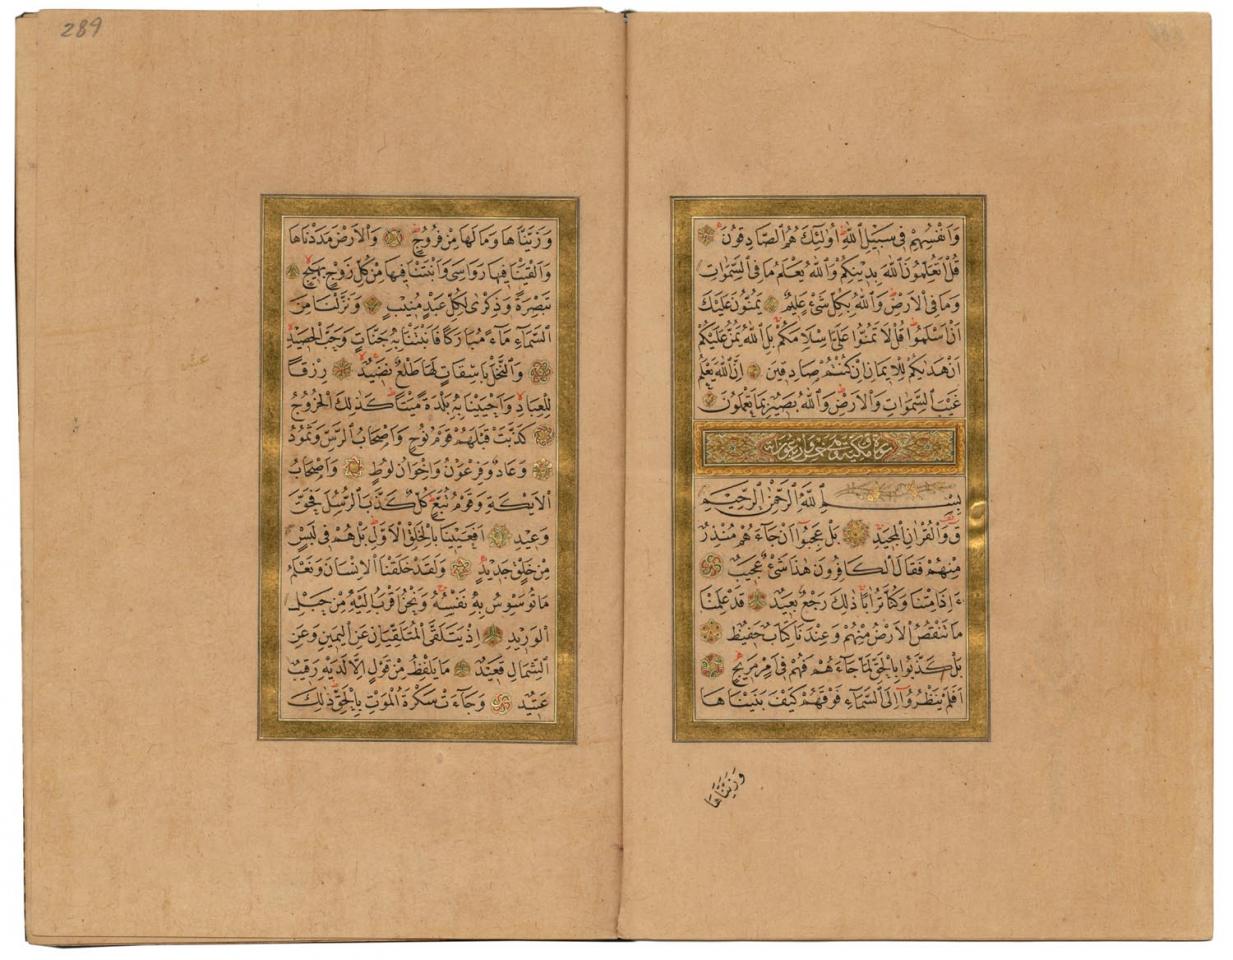 وَاَنْفُسِهِمْ فِى سَبِيلِ اللّٰهِ اُولٰئِكَ هُمُ الصَّادِقُونَ
قُلْ اَتُعَلِّمُونَ اللّٰهَ بِدِينِكُمْ وَاللّٰهُ يَعْلَمُ مَا فِى السَّمٰوَاتِ
وَمَا فِى الْاَرْضِ وَاللّٰهُ بِكُلِّ شَىْءٍ عَلِيمٌ يَمُنُّونَ عَلَيْكَ
اَنْ اَسْلَمُوا قُلْ لَا تَمُنُّوا عَلَىَّ اِسْلَامَكُمْ بَلِ اللّٰهُ يَمُنُّ عَلَيْكُمْ
اَنْ هَدٰيكُمْ لِلْاِيمَانِ اِنْ كُنْتُمْ صَادِقِينَ اِنَّ اللّٰهَ يَعْلَمُ
غَيْبَ السَّمٰوَاتِ وَالْاَرْضِ وَاللّٰهُ بَصِيرٌ بِمَا تَعْمَلُونَ
بِسْمِ اللّٰهِ الرَّحْمٰنِ الرَّحِيمِ
قٓ وَالْقُرْاٰنِ الْمَجِيدِ بَلْ عَجِبُوا اَنْ جَاءَهُمْ مُنْذِرٌ
مِنْهُمْ فَقَالَ الْكَافِرُونَ هٰذَا شَىْءٌ عَجِيبٌ
ءَاِذَا مِتْنَا وَكُنَّا تُرَابًا ذٰلِكَ رَجْعٌ بَعِيدٌ قَدْ عَلِمْنَا
مَا تَنْقُصُ الْاَرْضُ مِنْهُمْ وَعِنْدَنَا كِتَابٌ حَفِيظٌ
بَلْ كَذَّبُوا بِالْحَقِّ لَمَّا جَاءَهُمْ فَهُمْ فِى اَمْرٍ مَرِيجٍ
اَفَلَمْ يَنْظُرُوا اِلَى السَّمَاءِ فَوْقَهُمْ كَيْفَ بَنَيْنَاهَا
وَزَيَّنَّاهَا
289
وَزَيَّنَّاهَا وَمَا لَهَا مِنْ فُرُوجٍ وَالْاَرْضَ مَدَدْنَاهَا
وَاَلْقَيْنَا فِيهَا رَوَاسِىَ وَاَنْبَتْنَا فِيهَا مِنْ كُلِّ زَوْجٍ بَهِيجٍ
تَبْصِرَةً وَذِكْرٰى لِكُلِّ عَبْدٍ مُنِيبٍ وَنَزَّلْنَا مِنَ
السَّمَاءِ مَاءً مُبَارَكًا فَاَنْبَتْنَا بِهِ جَنَّاتٍ وَحَبَّ الْحَصِيدِ
وَالنَّخْلَ بَاسِقَاتٍ لَهَا طَلْعٌ نَضِيدٌ رِزْقًا
لِلْعِبَادِ وَاَحْيَيْنَا بِهِ بَلْدَةً مَيْتًا كَذٰلِكَ الْخُرُوجُ
كَذَّبَتْ قَبْلَهُمْ قَوْمُ نُوحٍ وَاَصْحَابُ الرَّسِّ وَثَمُودُ
وَعَادٌ وَفِرْعَوْنُ وَاِخْوَانُ لُوطٍ وَاَصْحَابُ
الْاَيْكَةِ وَقَوْمُ تُبَّعٍ كُلٌّ كَذَّبَ الرُّسُلَ فَحَقَّ
وَعِيدِ اَفَعَيِينَا بِالْخَلْقِ الْاَوَّلِ بَلْ هُمْ فِى لَبْسٍ
مِنْ خَلْقٍ جَدِيدٍ وَلَقَدْ خَلَقْنَا الْاِنْسَانَ وَنَعْلَمُ
مَا تُوَسْوِسُ بِهِ نَفْسُهُ وَنَحْنُ اَقْرَبُ اِلَيْهِ مِنْ حَبْلِ
الْوَرِيدِ اِذْ يَتَلَقَّى الْمُتَلَقِّيَانِ عَنِ الْيَمِينِ وَعَنِ
الشِّمَالِ قَعِيدٌ مَا يَلْفِظُ مِنْ قَوْلٍ اِلَّا لَدَيْهِ رَقِيبٌ
عَتِيدٌ وَجَاءَتْ سَكْرَةُ الْمَوْتِ بِالْحَقِّ ذٰلِكَ